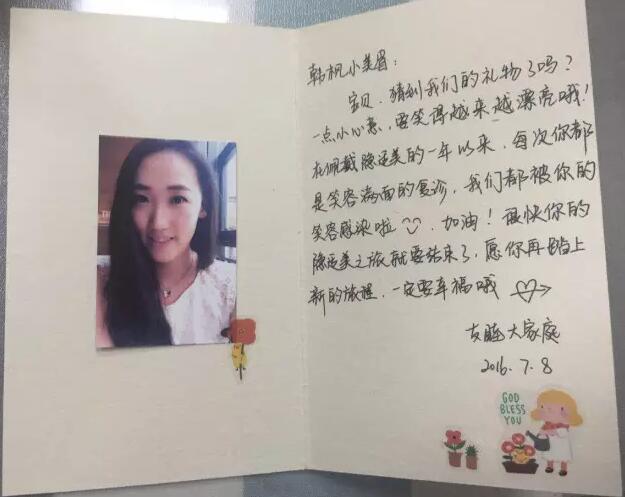 韩枫小美眉：
宝贝，猜到我们的礼物了吗？
一点小心意，要笑得越来越漂亮哦！
在佩戴隐适美的一年以来，每次你都
是笑容满面的复诊，我们都被你的
笑容感染啦 加油！很快你的
隐适美之旅就要结束了，愿你再踏上
新的旅程，一定要幸福哦
友睦大家庭
2016.7.8
GOD
BLESS
YOU